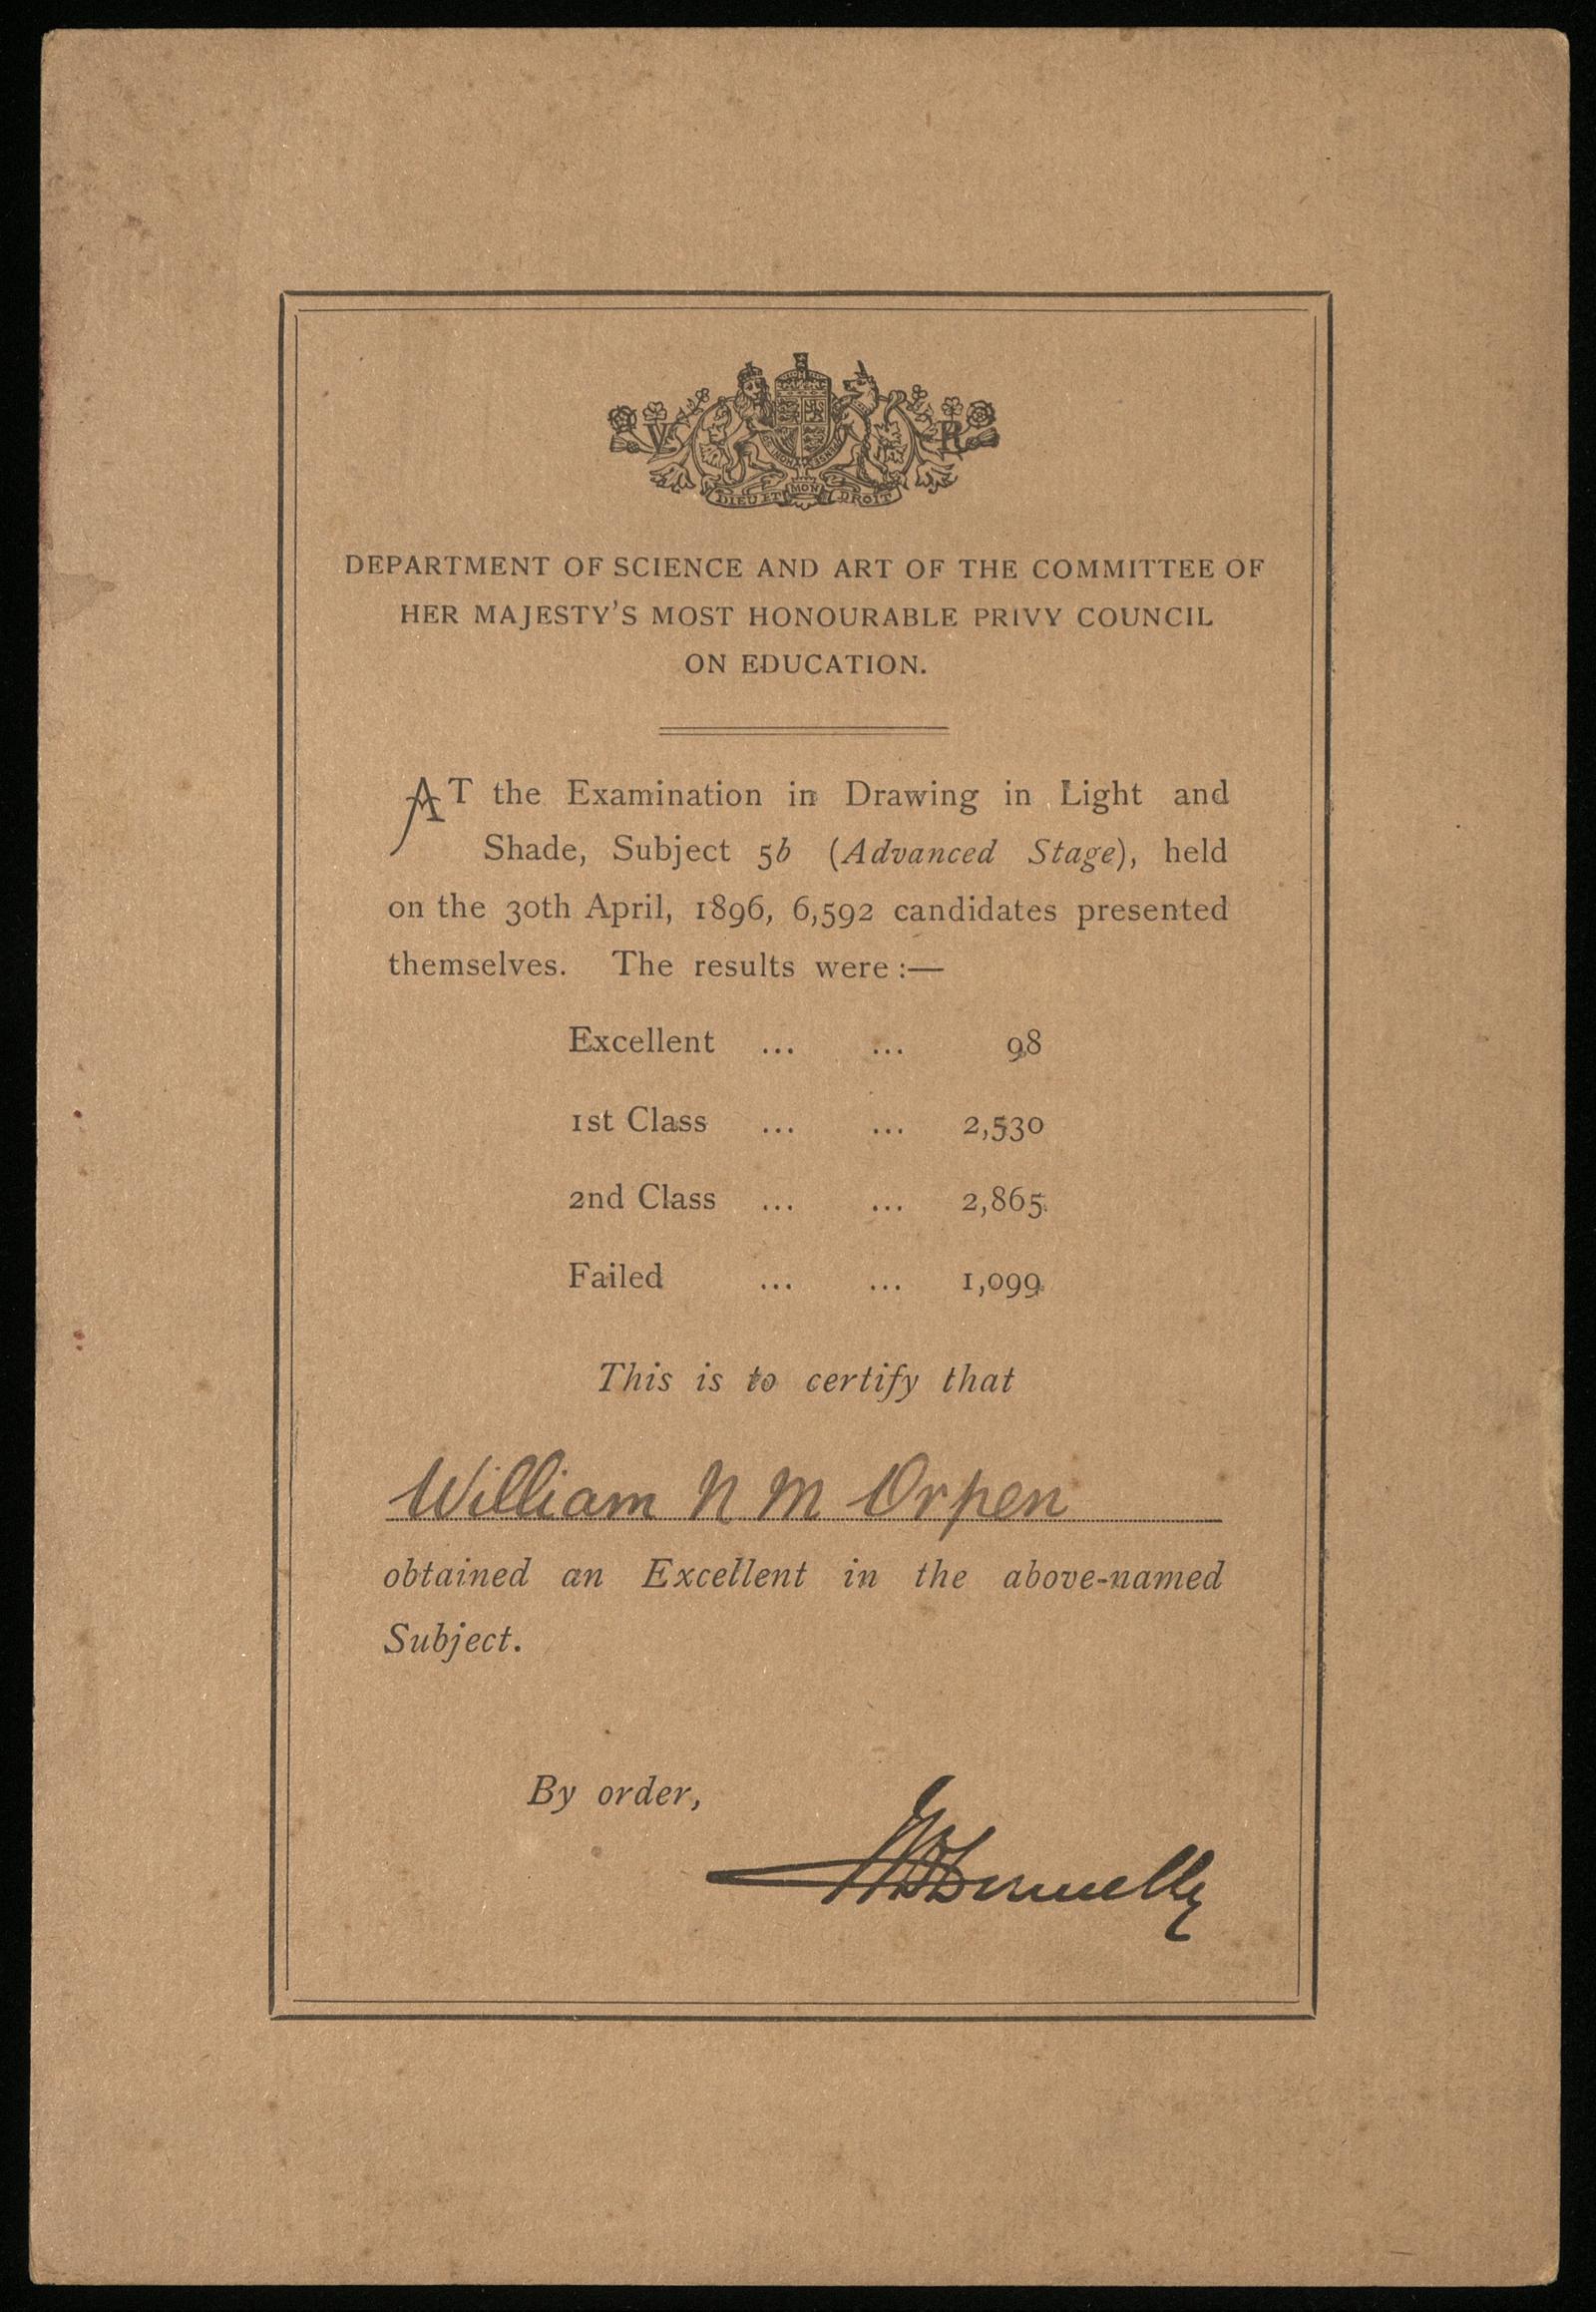 V R
HONI SOIT QUI MAL Y PENSE
DIEU ET MON DROIT
DEPARTMENT OF SCIENCE AND ART OF THE COMMITTEE OF
HER MAJESTY'S MOST HONOURABLE PRIVY COUNCIL
ON EDUCATION.
AT the Examination in Drawing in Light and
Shade, Subject 5b (Advanced Stage), held
on the 30th April, 1896, 6,592 candidates presented
themselves. The results were :—
Excellent ... ... 98
1st Class ... ... 2,530
2nd Class ... ... 2,865
Failed ... ... 1,099
This is to certify that
William N M Orpen
obtained an Excellent in the above-named
Subject.
By order,
Donnelly